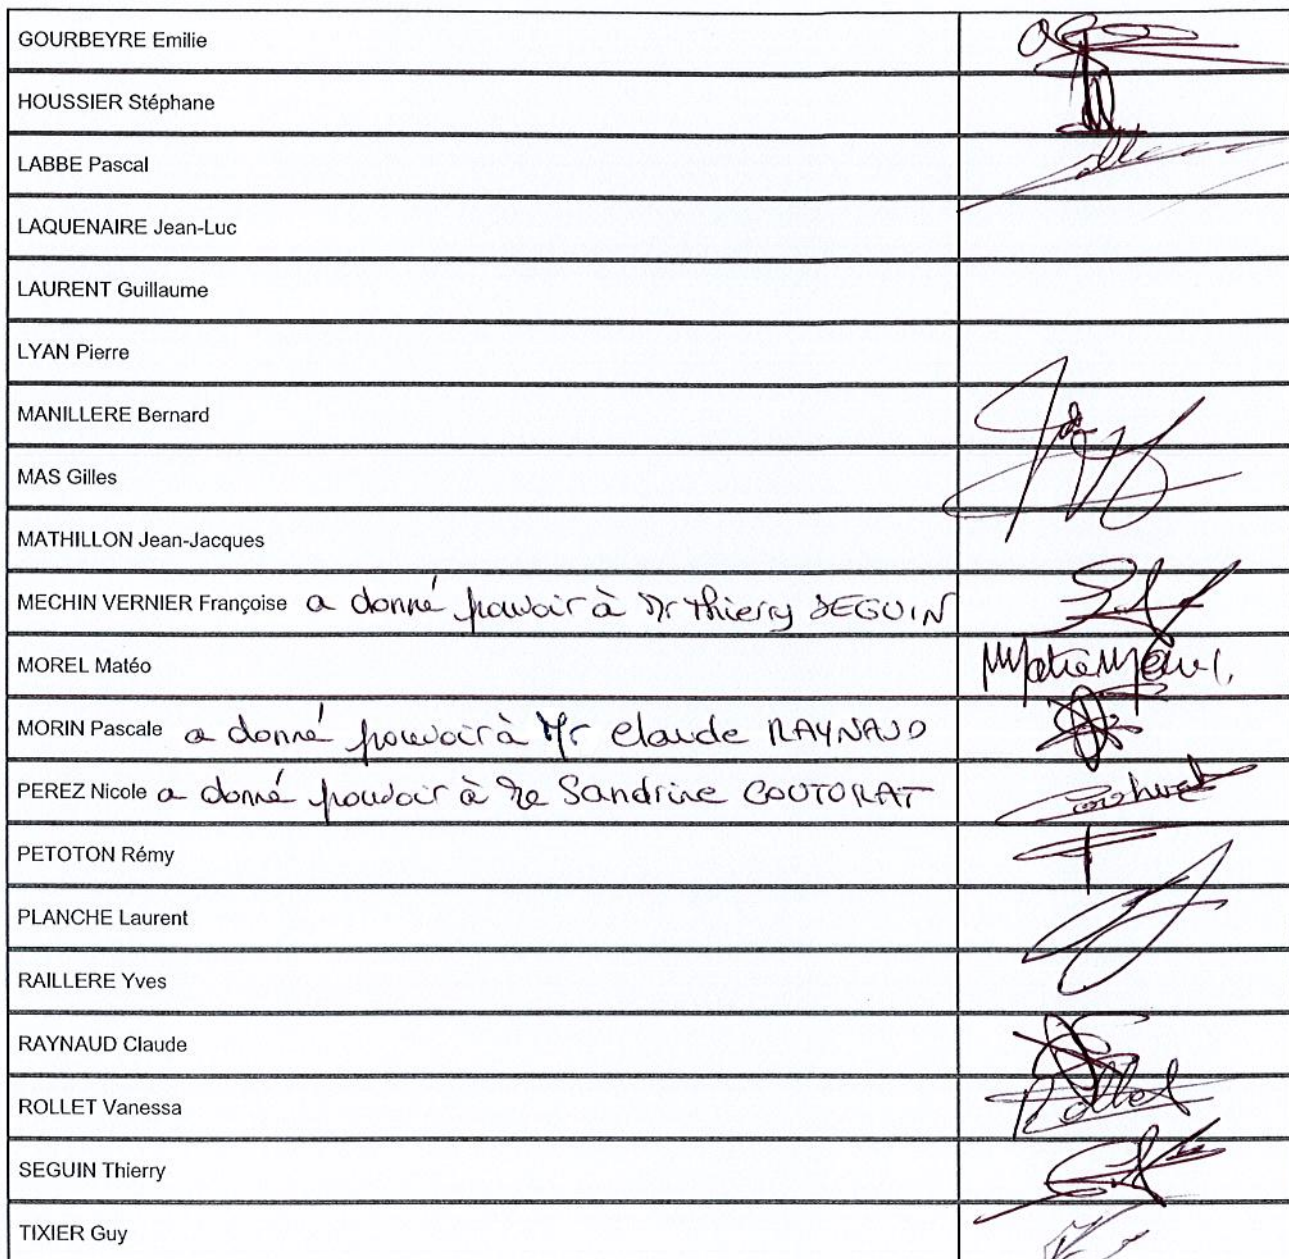 GOURBEYRE Emilie
HOUSSIER Stéphane
LABBE Pascal
LAQUENAIRE Jean-Luc
LAURENT Guillaume
LYAN Pierre
MANILLERE Bernard
MAS Gilles
MATHILLON Jean-Jacques
MECHIN VERNIER Françoise a donné pouvoir à Mr Thierry SEGUIN
MOREL Matéo
MORIN Pascale a donné pouvoir à Mr Claude RAYNAUD
PEREZ Nicole a donné pouvoir à Me Sandrine COUTORAT
PETOTON Rémy
PLANCHE Laurent
RAILLERE Yves
RAYNAUD Claude
ROLLET Vanessa Rollet
SEGUIN Thierry
TIXIER Guy